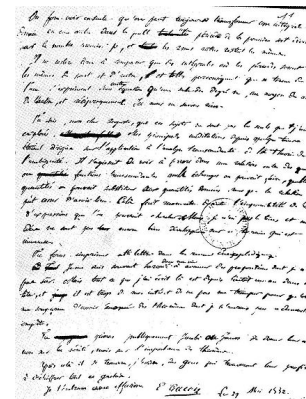 On fera voir ensuite qu'on peut toujours transformer une intégrale
donnée en une autre dans laquelle une période de la première soit divisée
par le nombre premier p, et les autres restent les mêmes.
Il ne restera donc à comparer que des intégrales où les périodes seront
les mêmes de part et d'autre, et telles par conséquent que n termes de
l'une s'expriment sans autre équation qu'une seule du degré n, au moyen de ceux
de l'autre, et réciproquement. Ici nous ne savons rien.
Tu sais, mon cher Auguste, que ces sujets ne sont pas les seuls que j'aie
explorés. Mes principales méditations depuis quelque temps
étaient dirigées sur l'application à l'analyse transcendante de la théorie de
l'ambiguité. Il s'agissait de voir à priori dans une relation entre des quantités
ou fonctions transcendantes quels échanges on pouvait faire, quelles
quantités on pouvait substituer aux quantités données sans que la relation
put cesser d'avoir lieu. Cela fait reconnaitre l'impossibilité de beaucoup
d'expressions que l'on pourrait chercher. Mais je n'ai pas le temps et mes
idées ne sont pas encore bien développées sur ce terrain qui est
immense.
Tu feras imprimer cette lettre dans la revue encyclopédique.
Je me suis souvent hasardé dans ma vie à avancer des propositions dont je n'étais
pas sûr. Mais tout ce que j'ai écrit là est depuis bientôt un an dans ma
tête, et il est trop de mon intérêt de ne pas me tromper pour qu'on
me soupçonne d'avoir énoncé des théorèmes dont je n'aurais pas la démonstration
complète.
Tu prieras publiquement Jacobi ou Gauss de donner leur avis
non sur la vérité, mais sur l'importance des théorèmes.
Après cela il se trouvera, j'espère, des gens qui trouveront leur profit
à déchiffrer tout ce gachis.
Je t'embrasse avec effusion. E Galois Le 29 Mai 1832.